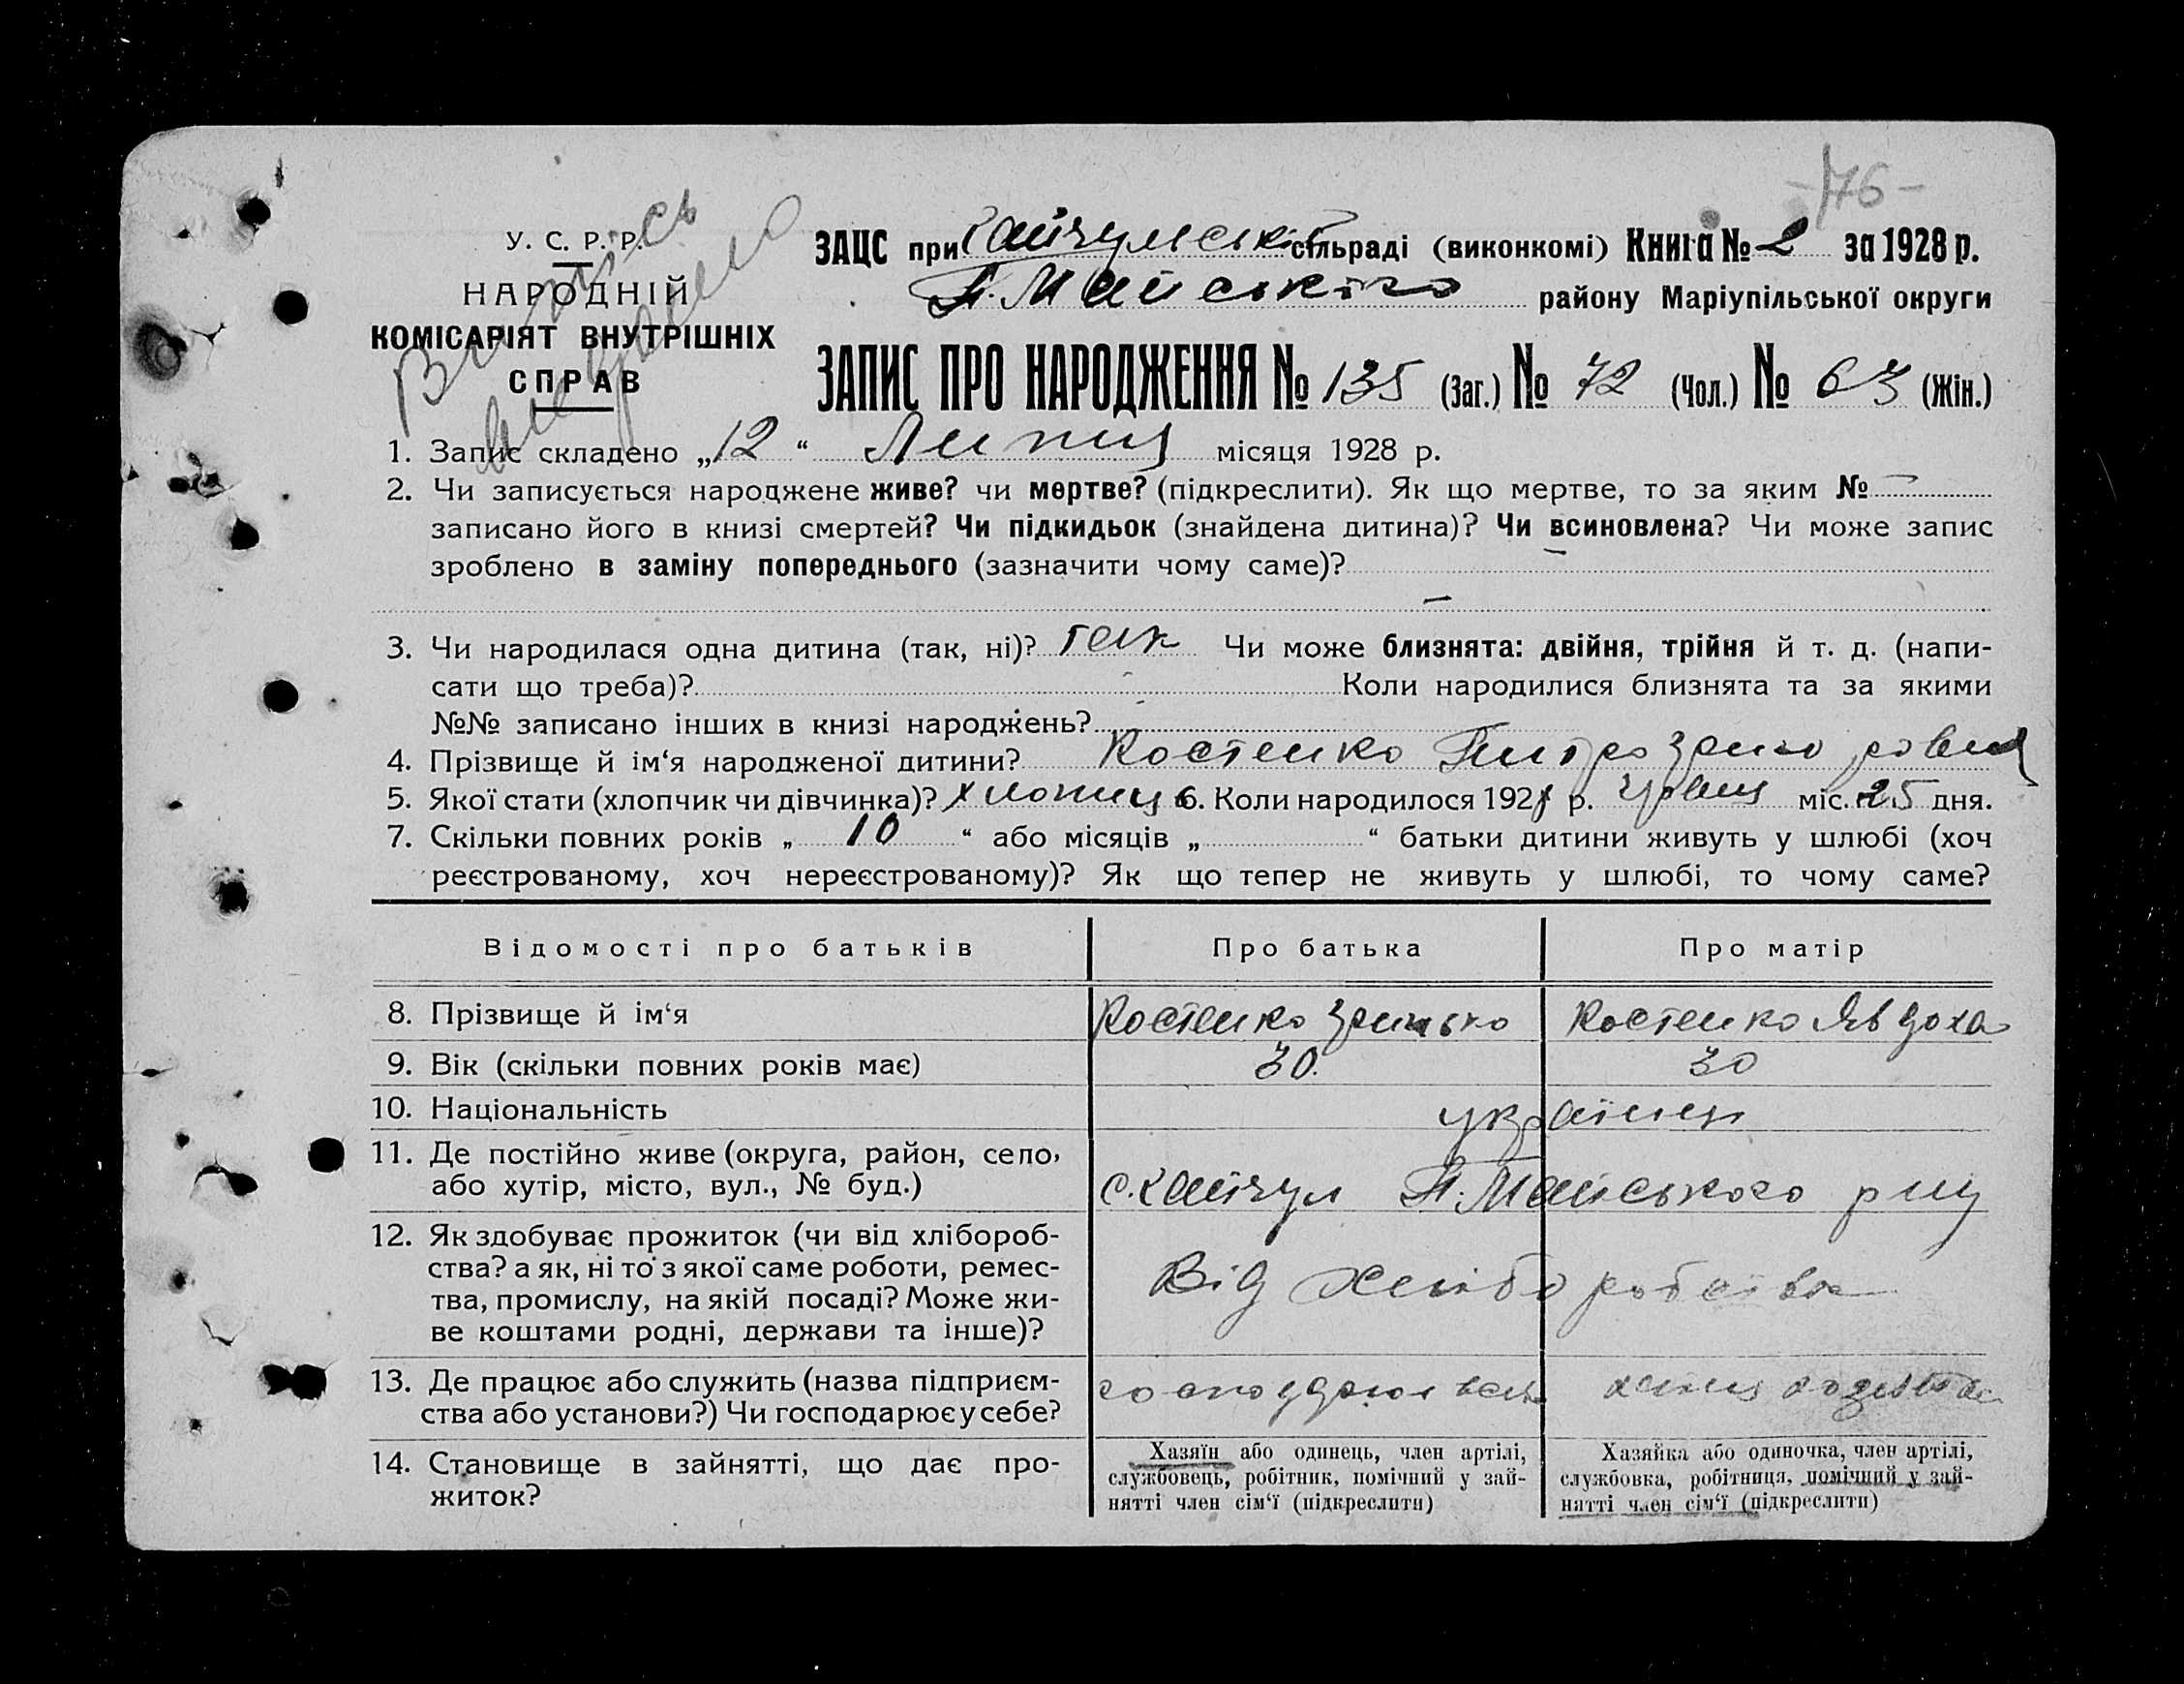 -76-
У. С. Р. Р.
НАРОДНІЙ
КОМІСАРІЯТ ВНУТРІШНІХ
СПРАВ
Витпись
ЗАЦС при Гайчулській сільраді (виконкомі) Книга № 2 за 1928 р.
П. Майського району Маріупільської округи
ЗАПИС ПРО НАРОДЖЕННЯ № 135 (Заг.) № 72 (Чол.) № 63 (Жін.)
1. Запис складено „12“ Липня місяця 1928 р.
2. Чи записується народжене живе? чи мертве? (підкреслити). Як що мертве, то за яким № —
записано його в книзі смертей? Чи підкидьок (знайдена дитина)? Чи всиновлена? Чи може запис
зроблено в заміну попереднього (зазначити чому саме)? —
—
3. Чи народилася одна дитина (так, ні)? так Чи може близнята: двійня, трійня й т. д. (напи-
сати що треба)? Коли народилися близнята та за якими
№№ записано інших в книзі народжень?
4. Прізвище й ім‘я народженої дитини? Костенко
5. Якої статі (хлопчик чи дівчинка)? хлопиць 6. Коли народилося 1928 р. Червня міс. 25 дня.
7. Скільки повних років „ 10 “ або місяців „ “ батьки дитини живуть у шлюбі (хоч
реєстрованому, хоч нереєстрованому)? Як що тепер не живуть у шлюбі, то чому саме?
Відомості про батьків Про батька Про матір
8. Прізвище й ім‘я Костенко Гринько Костенко Явдоха
9. Вік (скільки повних років має) 30. 30
10. Національність українці
11. Де постійно живе (округа, район, село,
або хутір, місто, вул., № буд.) с. Гайчул П. Майського р-ну
12. Як здобуває прожиток (чи від хлібороб-
ства? а як, ні то з якої саме роботи, ремес-
тва, промислу, на якій посаді? Може жи-
ве коштами родні, держави та інше)?
Від хліборобства
13. Де працює або служить (назва підприєм-
ства або установи?) Чи господарює у себе?
14. Становище в зайнятті, що дає про-
житок?
Хазяїн або одинець, член артілі,
службовець, робітник, помічний у зай-
нятті член сім‘ї (підкреслити)
Хазяйка або одиночка, член артілі,
службовка, робітниця, помічний у зай-
нятті член сім‘ї (підкреслити)